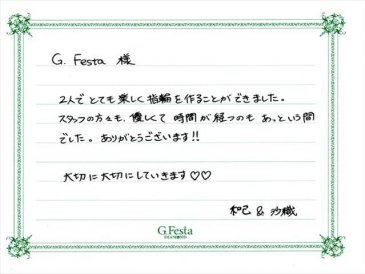 G. Festa 様
2人でとても楽しく指輪を作ることができました。
スタッフの方々も、優しくて 時間が経つのも あっという間
でした。ありがとうございます!!
大切に大切にしていきます♡♡
和己 & 沙織
G.Festa
DIAMOND